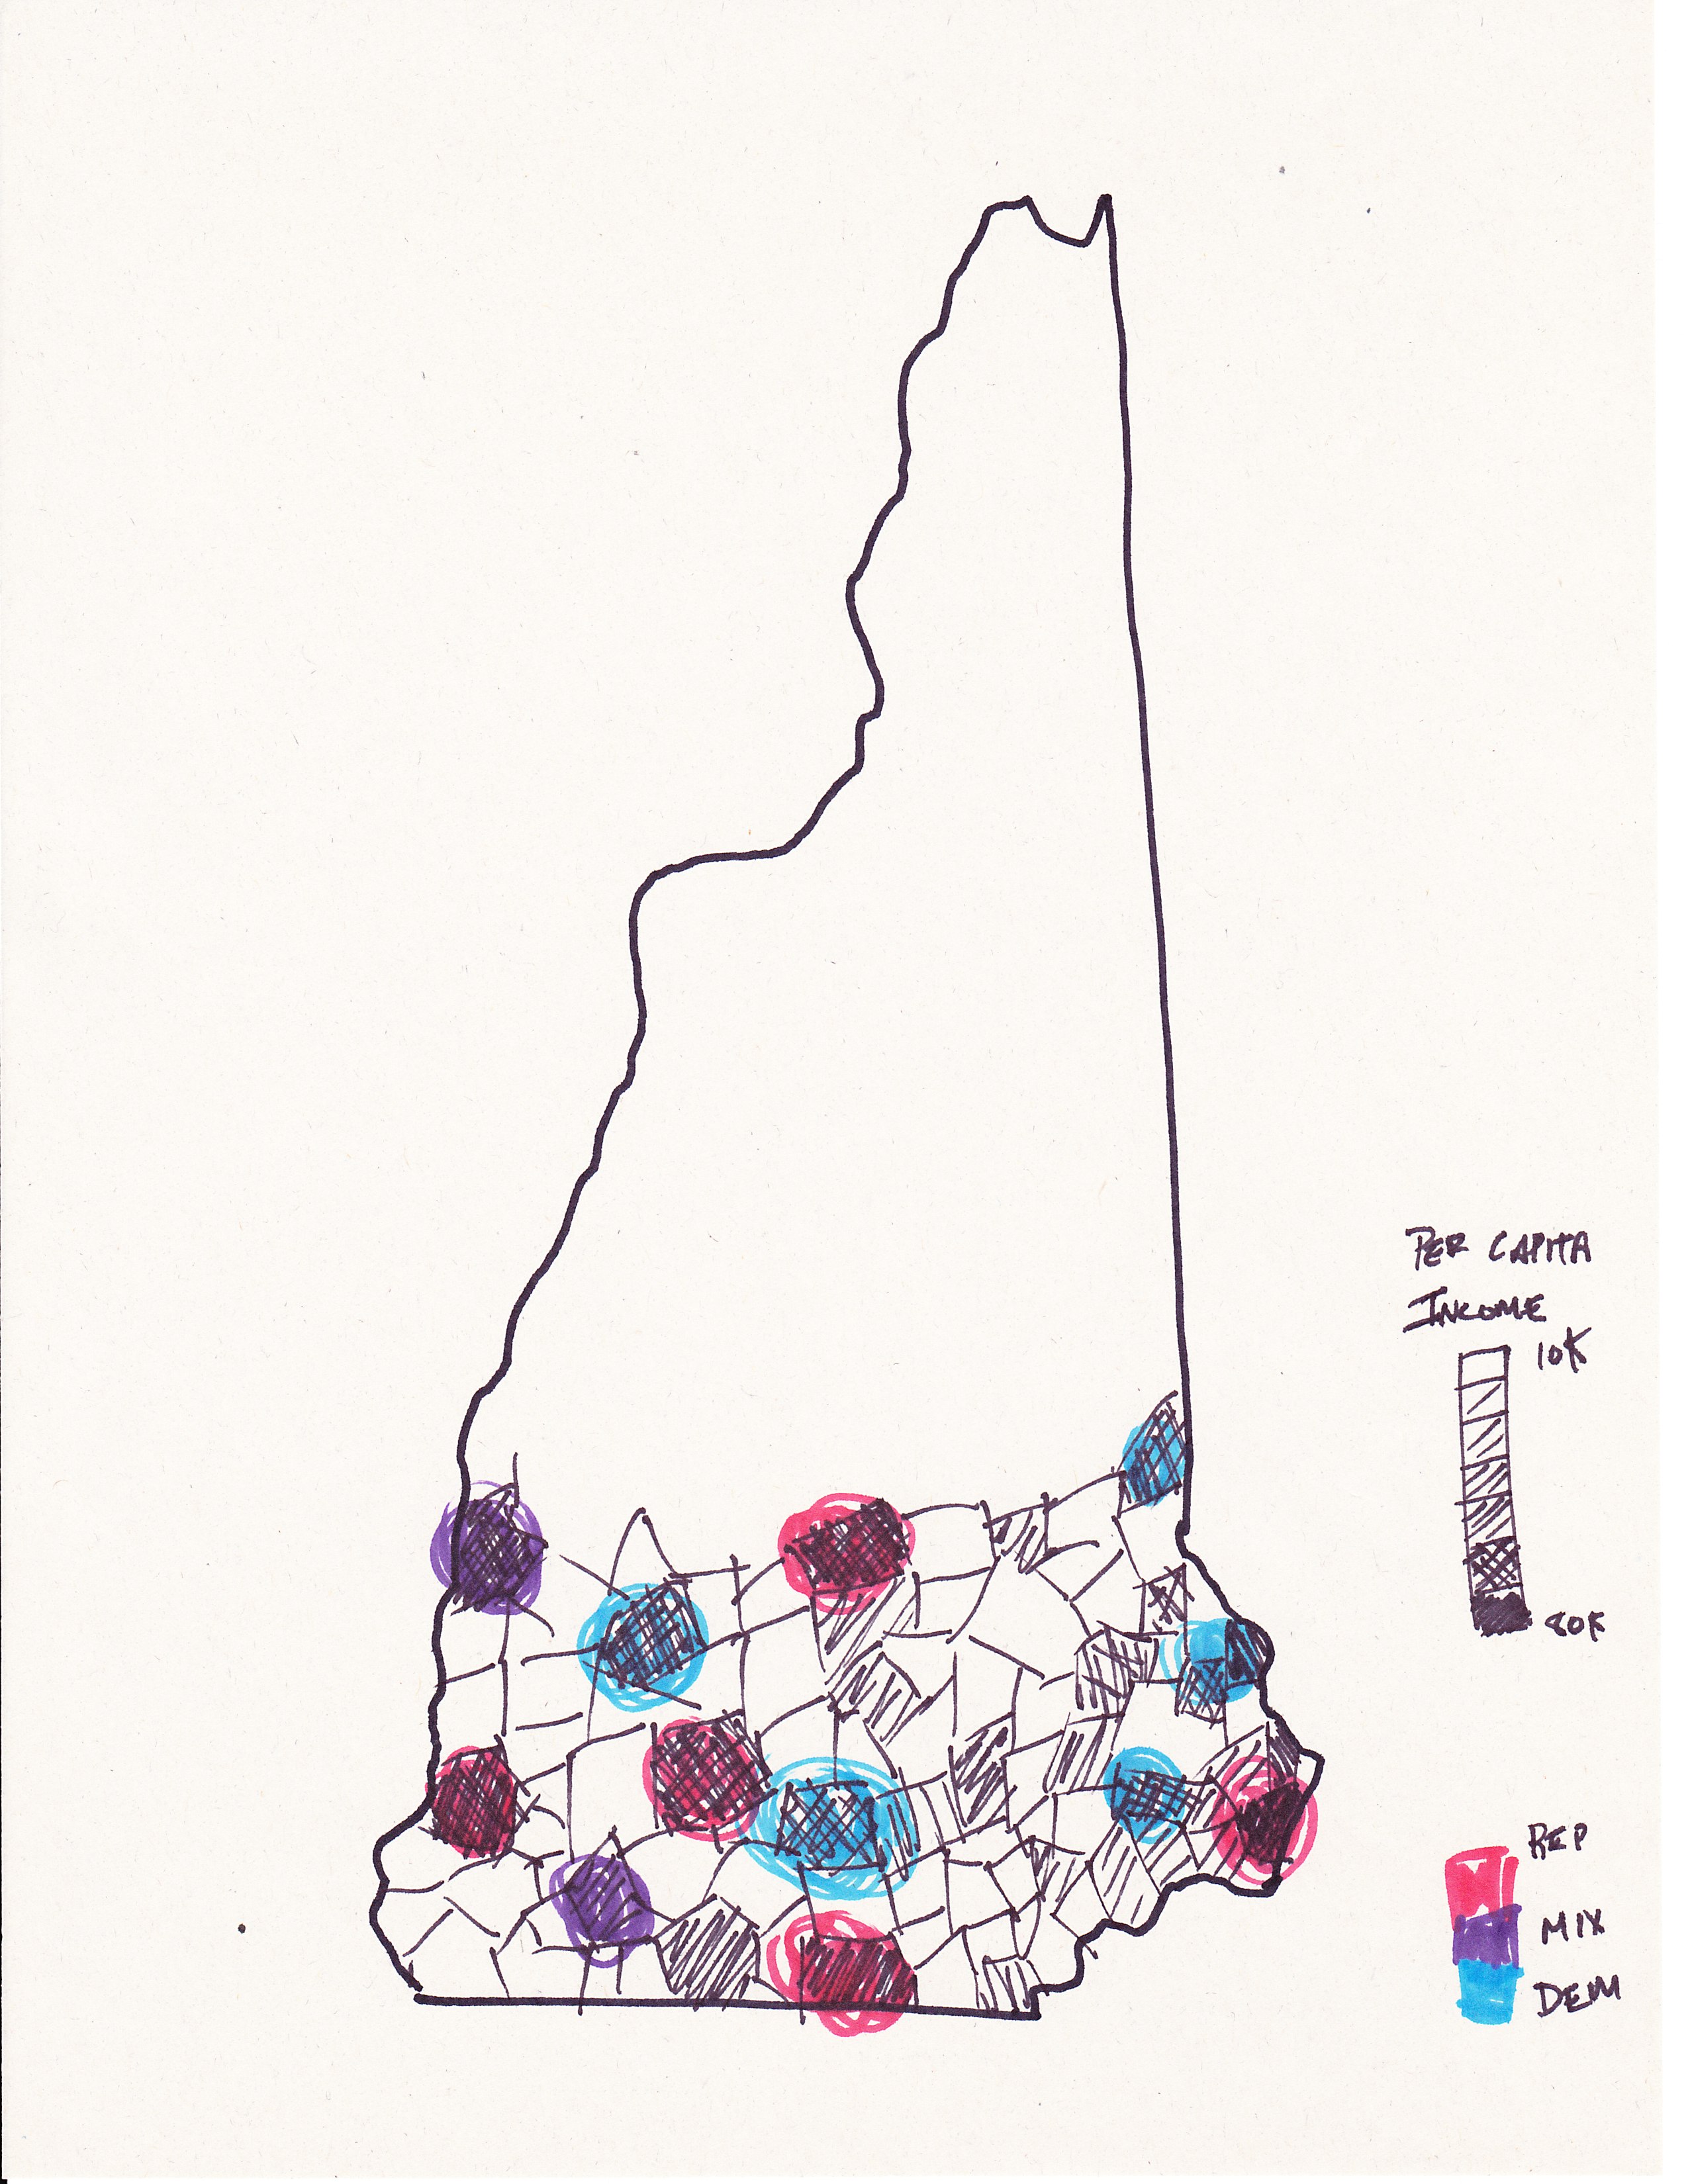 PER CAPITA
INCOME
10K
80K
REP
MIX
DEM